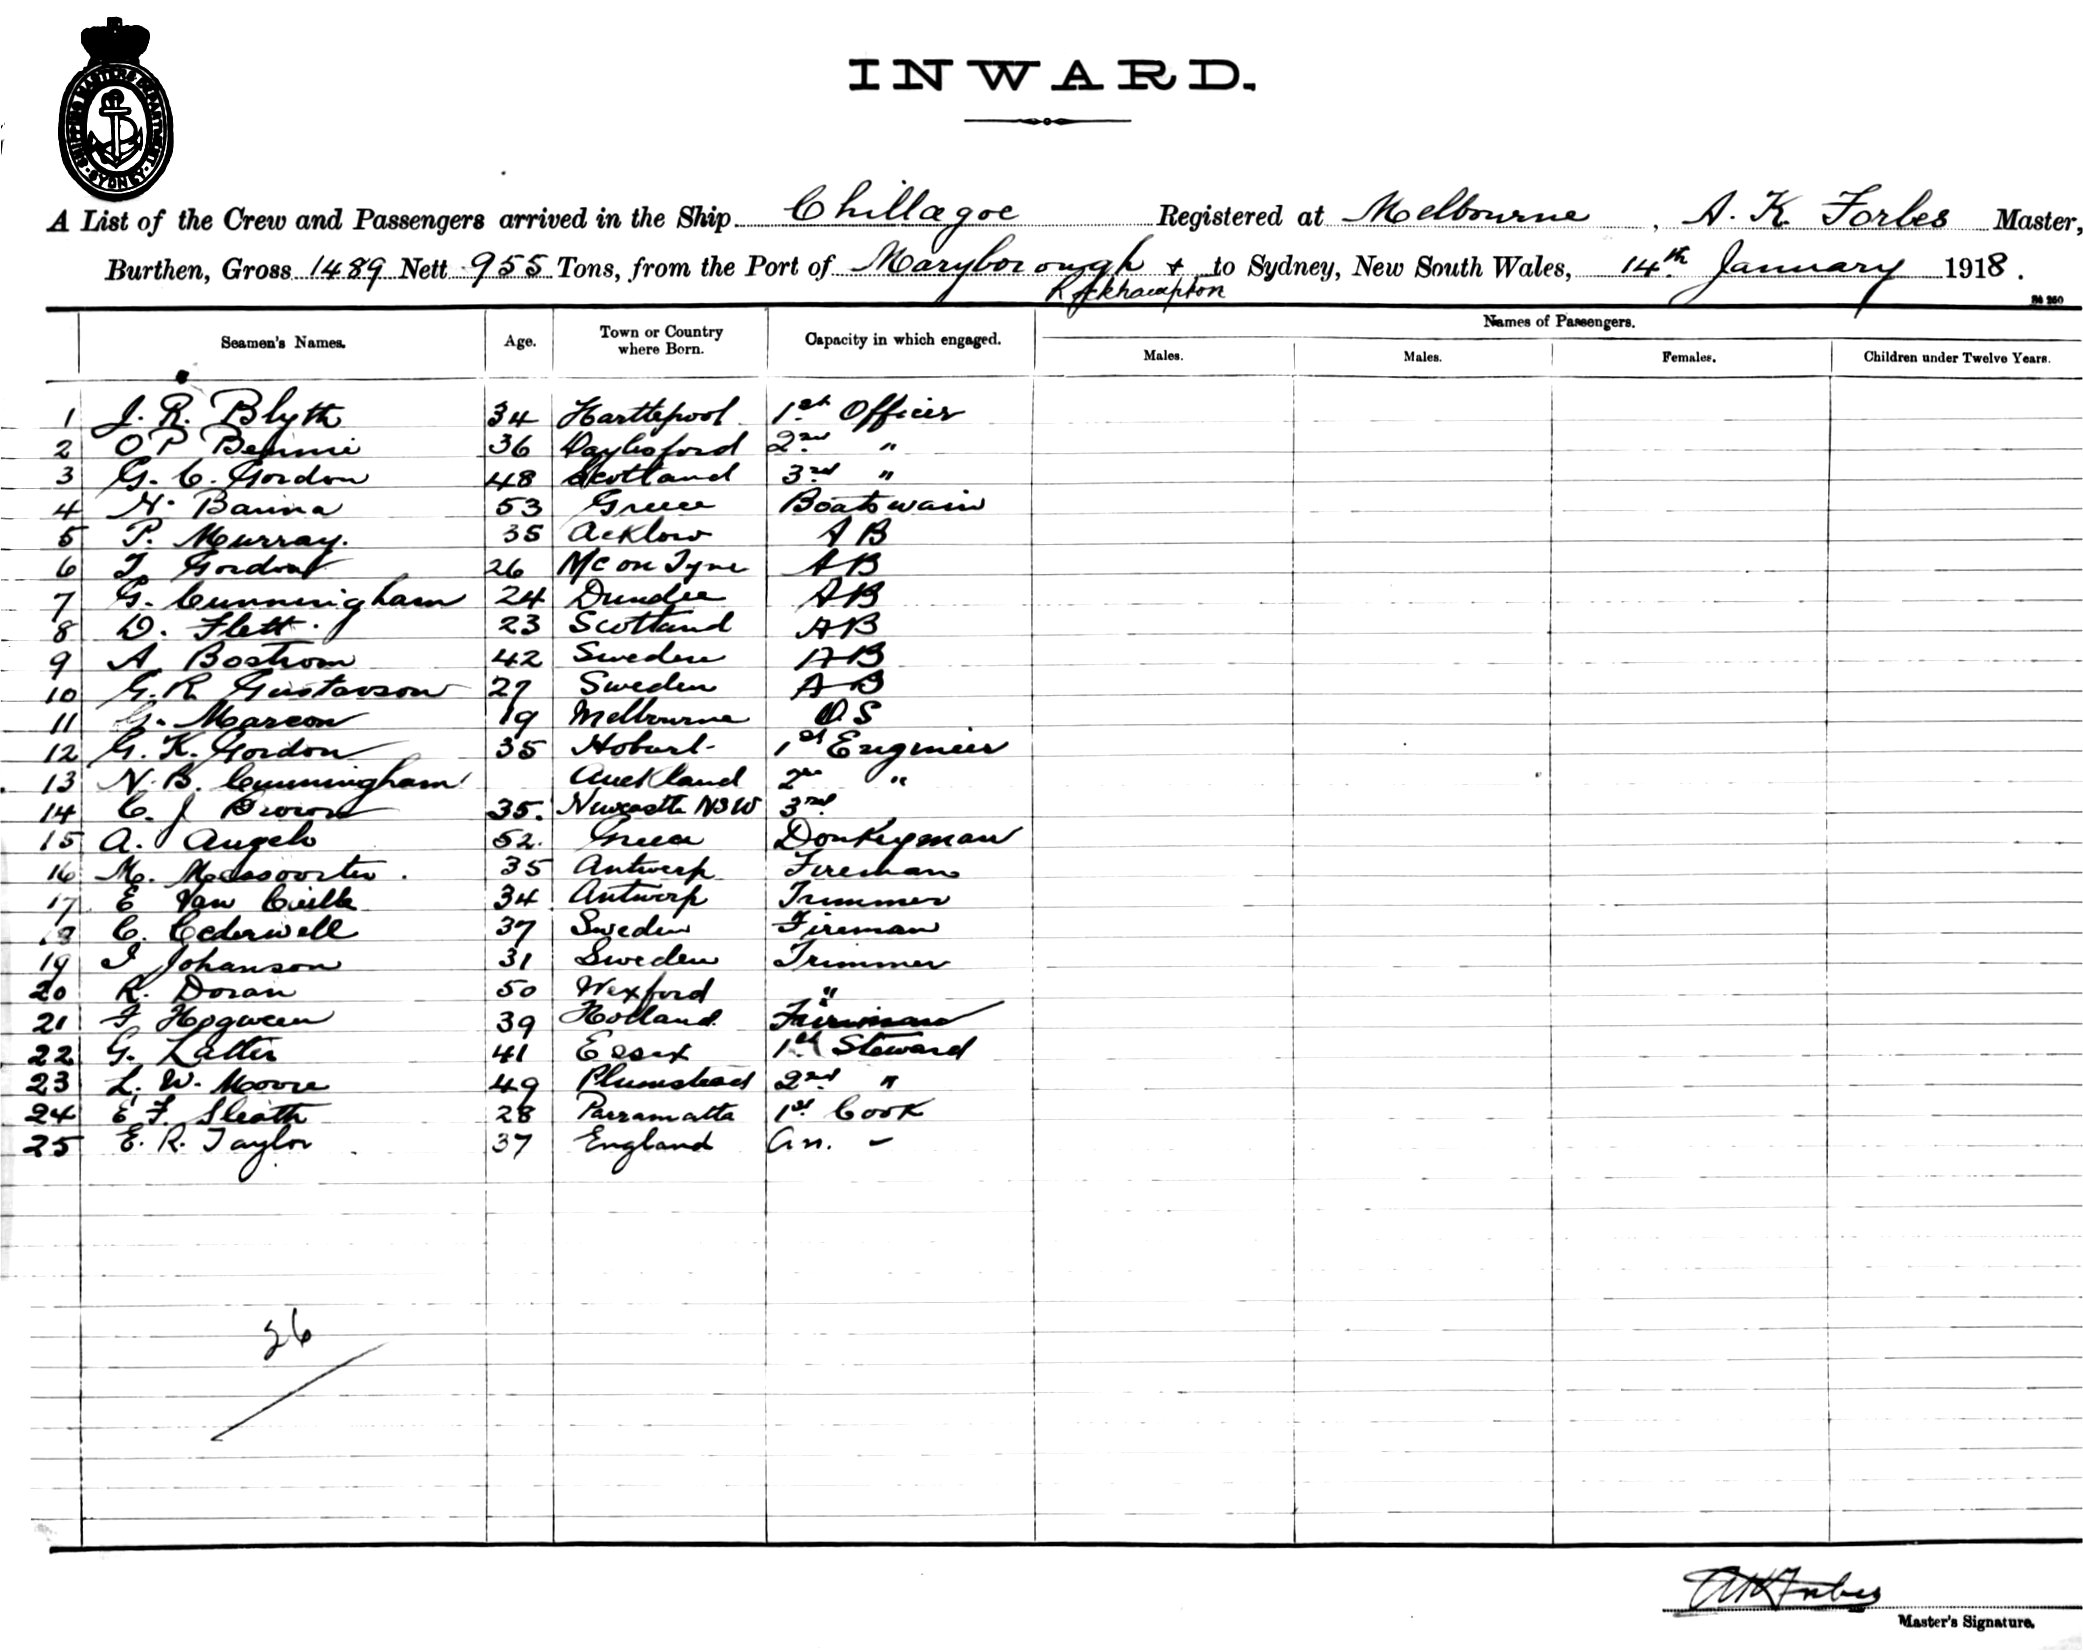 SHIPPING MASTERS DEPARTMENT
SYDNEY
INWARD.
A List of the Crew and Passengers arrived in the Ship Chillagoe Registered at Melbourne, A. K. Forbes Master,
Burthen, Gross 1489 Nett 955 Tons, from the Port of Maryborough + to Sydney, New South Wales, 14th January 1918.
Rockhampton
Seamen's Names. Age. Town or Country where Born. Capacity in which engaged. Names of Passengers.
Males. Males. Females. Children under Twelve Years.
1 J. R. Blyth 34 Hartlepool 1st Officer
2 O P Bennie 36 Daylesford 2nd "
3 G. C. Gordon 48 Scotland 3rd "
4 N. Banna 53 Greece Boatswain
5 P. Murray. 35 Acklow A B
6 T Gordon 26 Nc on Tyne A B
7 G. Cunningham 24 Dundee A B
8 D. Flett. 23 Scotland A B
9 A Bostrom 42 Sweden A B
10 G. R Gustavson 27 Sweden A B
11 G. Marcon 19 Melbourne O S
12 G. K. Gordon 35 Hobart 1st Engineer
13 N. B. Cunningham Auckland 2nd "
14 C. J Brown 35. Newcastle NSW 3rd
15 A. Angelo 52. Greece Donkeyman
16 M. 35 Antwerp Fireman
17 E Van 34 Antwerp Trimmer
18 C. Cederwell 37 Sweden Fireman
19 J Johanson 31 Sweden Trimmer
20 R. Doran 50 Wexford "
21 F 39 Holland Fireman
22 G. Latter 41 Essex 1st Steward
23 L. W. Moore 49 Plumstead 2nd "
24 E F. Sleath 28 Parramatta 1st Cook
25 E. R. Taylor 37 England An. -
26
AKForbes
Master's Signature.